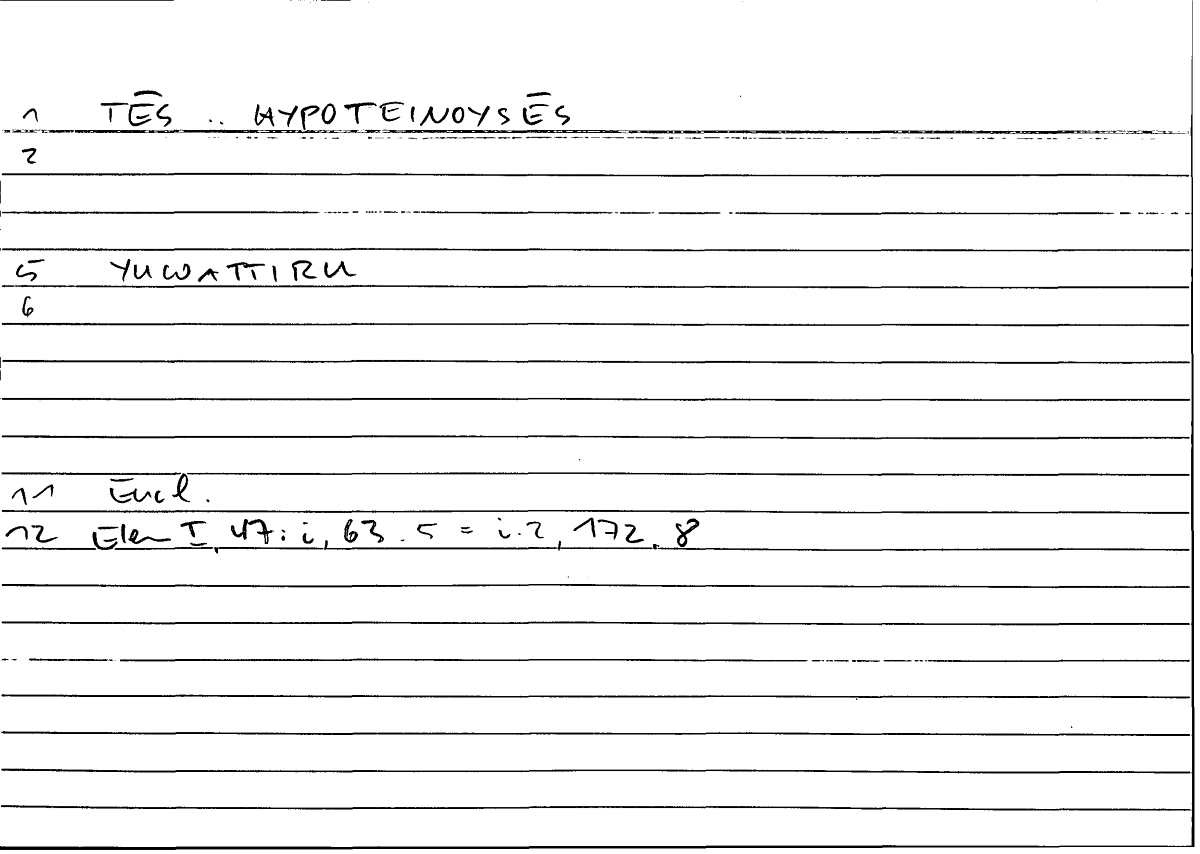 1 TĒS .. HYPOTEINOYSĒS
2
5 YUWATTIRU
6
11 Eucl.
12 Elem I, 47: i, 63.5 = i.2, 172.8